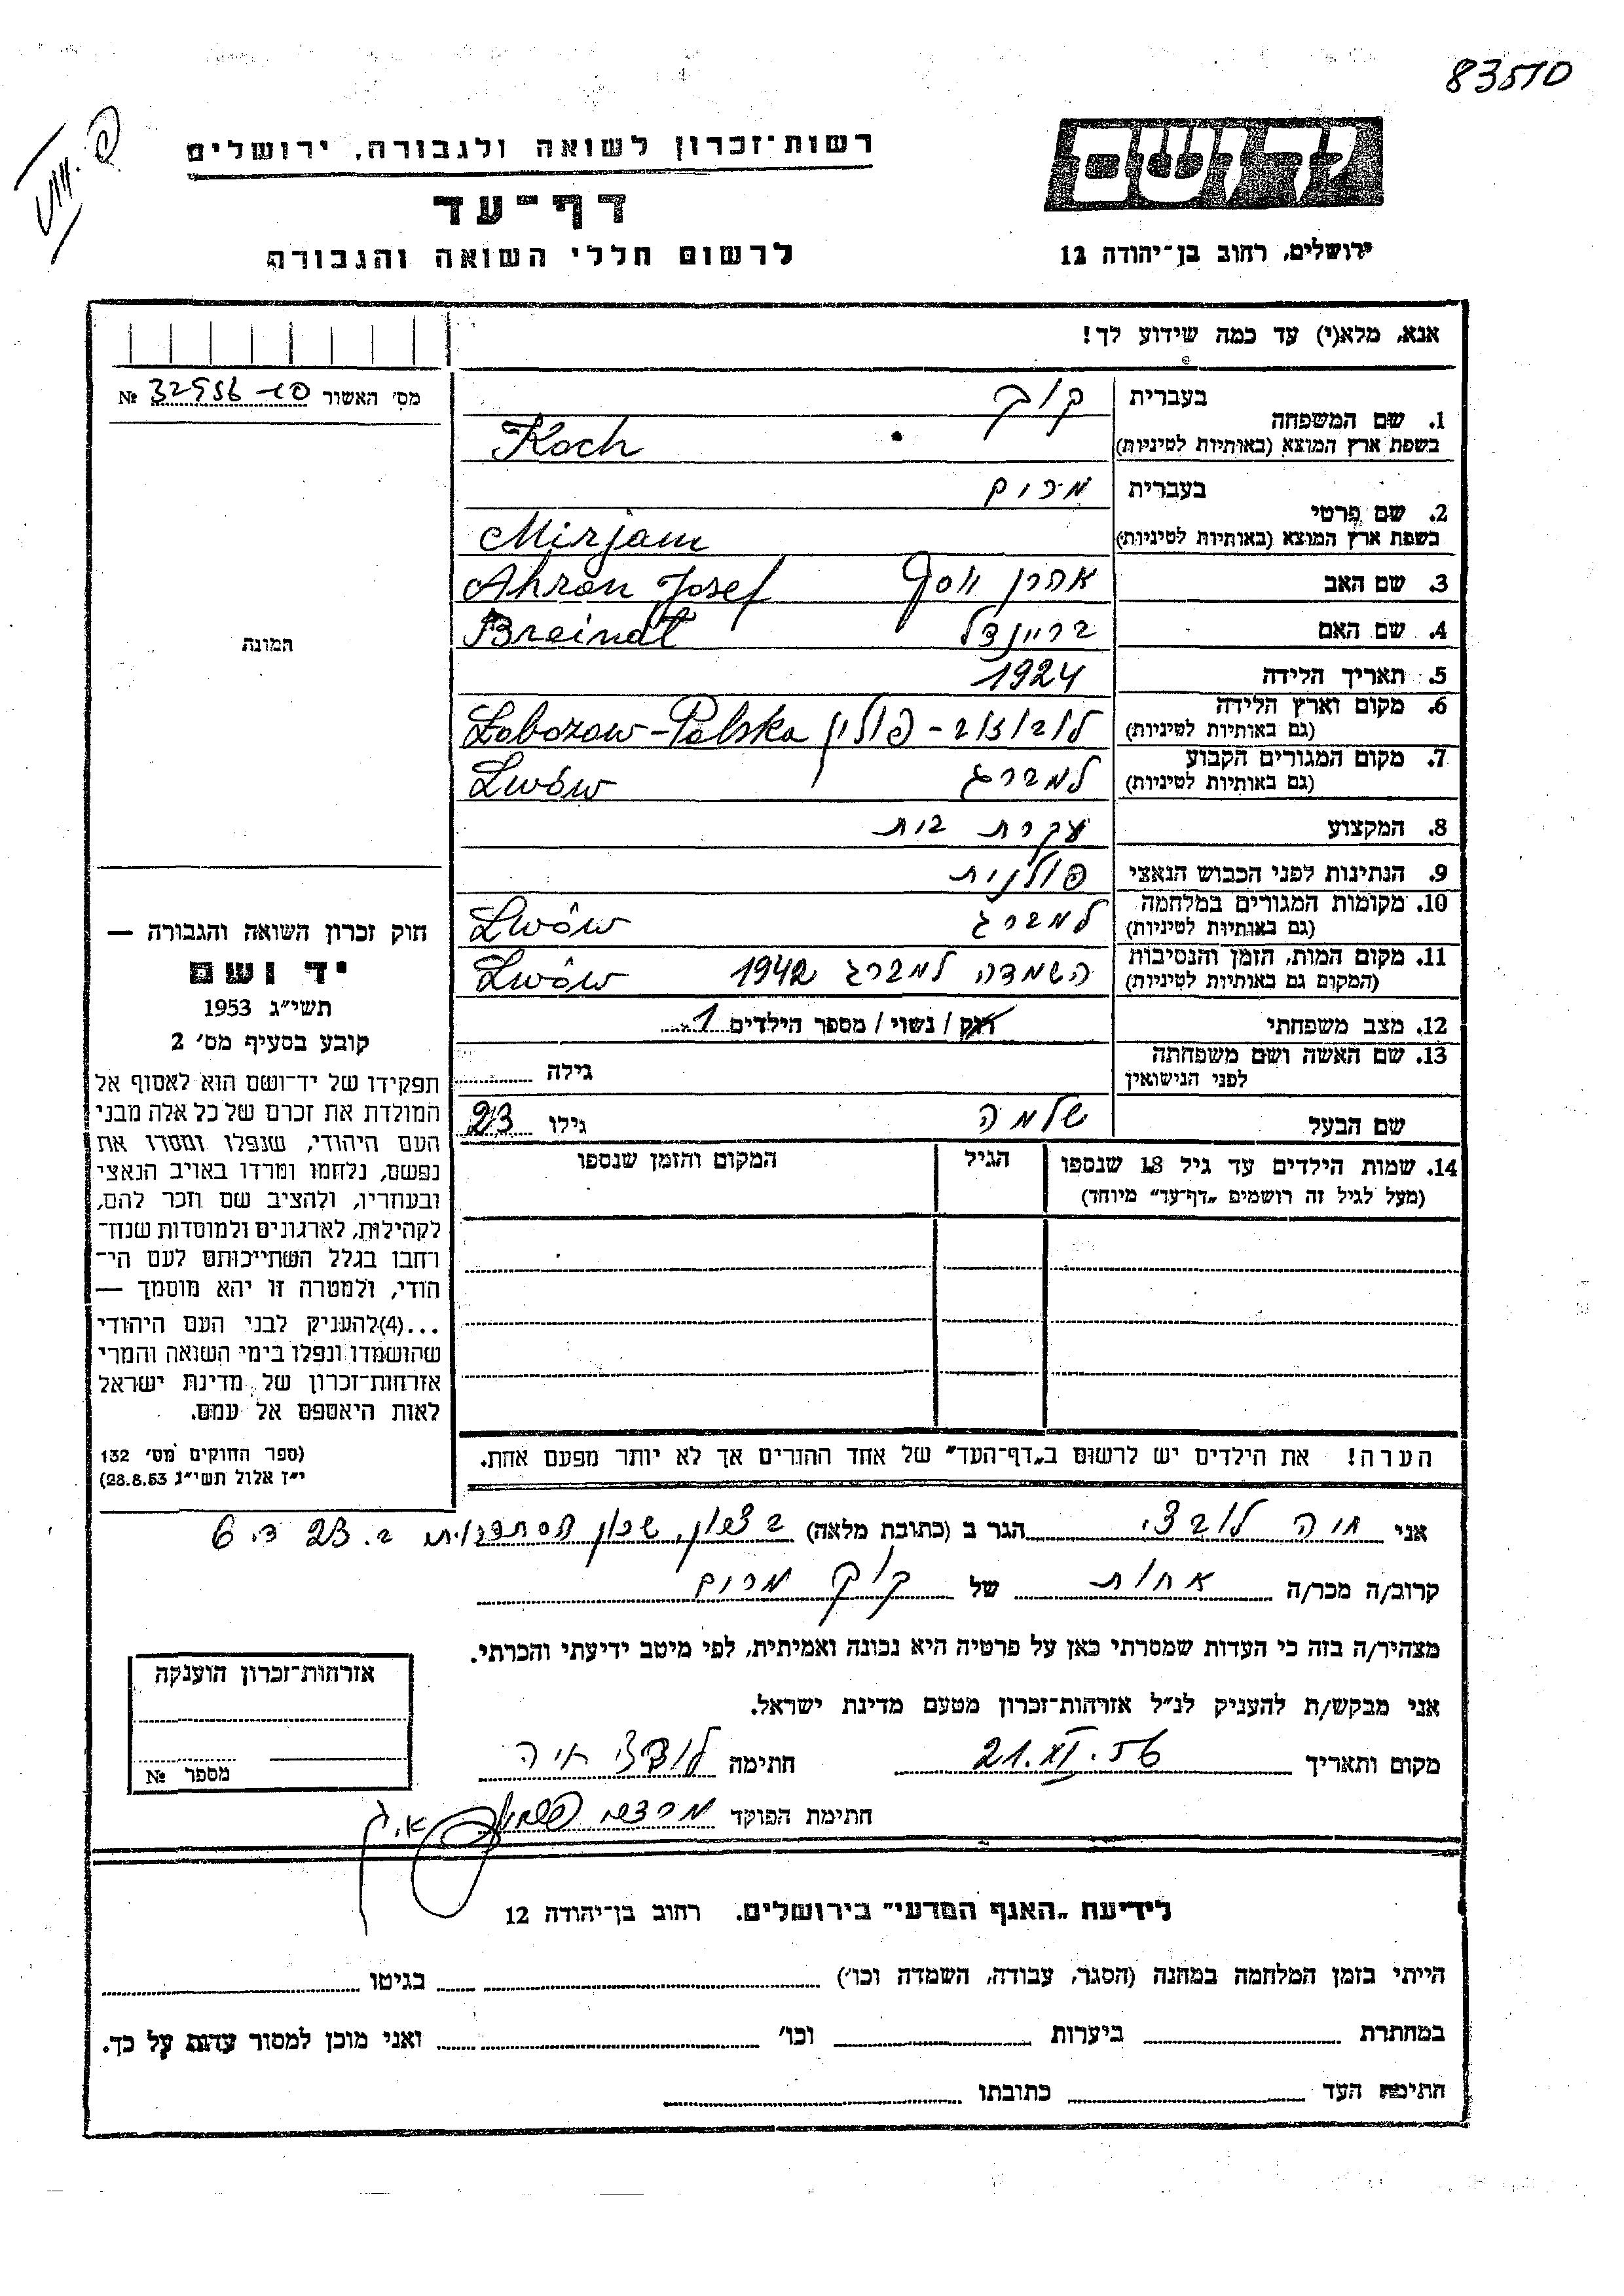 83510
רשות־זכרון לשואה ולגבורה, ירושלים
דף־עד
לרשום חללי השואה והגבורה
יד ושם
ירושלים, רחוב בן־יהודה 12
אנא, מלא(י) עד כמה שידוע לך!
מס׳ האשור №
1. שם המשפחה
בעברית קוך
בשפת ארץ המוצא (באותיות לטיניות) Koch
2. שם פרטי
בעברית מרים
בשפת ארץ המוצא (באותיות לטיניות) Mirjam
3. שם האב אהרן יוסף Ahron Josef
4. שם האם בריינדל Breindl
5. תאריך הלידה 1924
6. מקום וארץ הלידה
(גם באותיות לטיניות) פולין Lobozow-Polska
7. מקום המגורים הקבוע
(גם באותיות לטיניות) למברג Lwów
8. המקצוע עקרת בית
9. הנתינות לפני הכבוש הנאצי פולנית
10. מקומות המגורים במלחמה
(גם באותיות לטיניות) למברג Lwów
11. מקום המות, הזמן והנסיבות
(המקום גם באותיות לטיניות) השמדה למברג 1942 Lwów
12. מצב משפחתי רוק / נשוי / מספר הילדים 1
13. שם האשה ושם משפחתה
לפני הנישואין גילה
שם הבעל שלמה גילו 23
14. שמות הילדים עד גיל 18 שנספו
(מעל לגיל זה רושמים „דף־עד” מיוחד)
הגיל
המקום והזמן שנספו
הערה! את הילדים יש לרשום ב„דף־העד” של אחד ההורים אך לא יותר מפעם אחת.
תמונה
חוק זכרון השואה והגבורה —
יד ושם
תשי״ג 1953
קובע בסעיף מס׳ 2
תפקידו של יד־ושם הוא לאסוף אל
המולדת את זכרם של כל אלה מבני
העם היהודי, שנפלו ומסרו את
נפשם, נלחמו ומרדו באויב הנאצי
ובעוזריו, ולהציב שם וזכר להם,
לקהילות, לארגונים ולמוסדות שנח־
רבו בגלל השתייכותם לעם הי־
הודי, ולמטרה זו יהא מוסמך —
...(4)להעניק לבני העם היהודי
שהושמדו ונפלו בימי השואה והמרי
אזרחות־זכרון של מדינת ישראל
לאות היאספם אל עמם.
(ספר החוקים מס׳ 132
י״ז אלול תשי״ג 28.8.53)
אני חיה הגר ב (כתובת מלאה) שכון ב. 23 ד. 6
קרוב/ה מכר/ה אחות של קוך מרים
מצהיר/ה בזה כי העדות שמסרתי כאן על פרטיה היא נכונה ואמיתית, לפי מיטב ידיעתי והכרתי.
אני מבקש/ת להעניק לנ״ל אזרחות־זכרון מטעם מדינת ישראל.
מקום ותאריך 21.XI.56 חתימה חיה
חתימת הפוקד
אזרחות־זכרון הוענקה
מספר №
לידיעת „האגף המדעי” בירושלים. רחוב בן־יהודה 12
הייתי בזמן המלחמה במחנה (הסגר, עבודה, השמדה וכו׳) בגיטו
במחתרת ביערות וכו׳ ואני מוכן למסור עדות על כך.
חתימת העד כתובתו